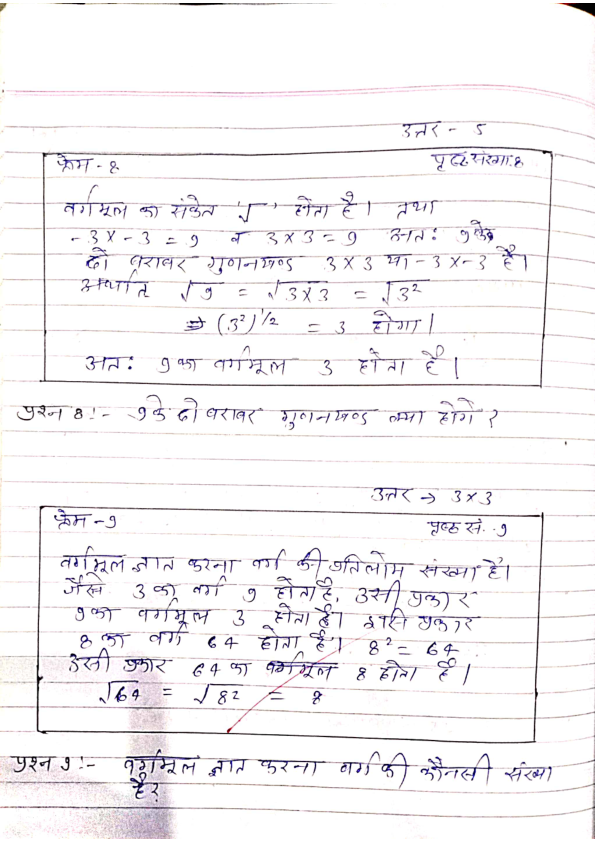 उत्तर - 5
फ्रेम - 8 पृष्ठ संख्या: 8
वर्गमूल का संकेत '√' होता है। तथा
-3 x -3 = 9 व 3 x 3 = 9 अतः 9 के
दो बराबर गुणनखण्ड 3 x 3 या -3 x -3 है।
अर्थात √9 = √3x3 = √3²
⇒ (3²)^1/2 = 3 होगा।
अतः 9 का वर्गमूल 3 होता है।
प्रश्न 8 :- 9 के दो बराबर गुणनखण्ड क्या होगें ?
उत्तर → 3 x 3
फ्रेम - 9 पृष्ठ सं. 9
वर्गमूल ज्ञात करना वर्ग की प्रतिलोम संख्या है।
जैसे 3 का वर्ग 9 होता है, उसी प्रकार
9 का वर्गमूल 3 होता है। इसी प्रकार
8 का वर्ग 64 होता है। 8² = 64
उसी प्रकार 64 का वर्गमूल 8 होता है।
√64 = √8² = 8
प्रश्न 9 :- वर्गमूल ज्ञात करना वर्ग की कौनसी संख्या
है?